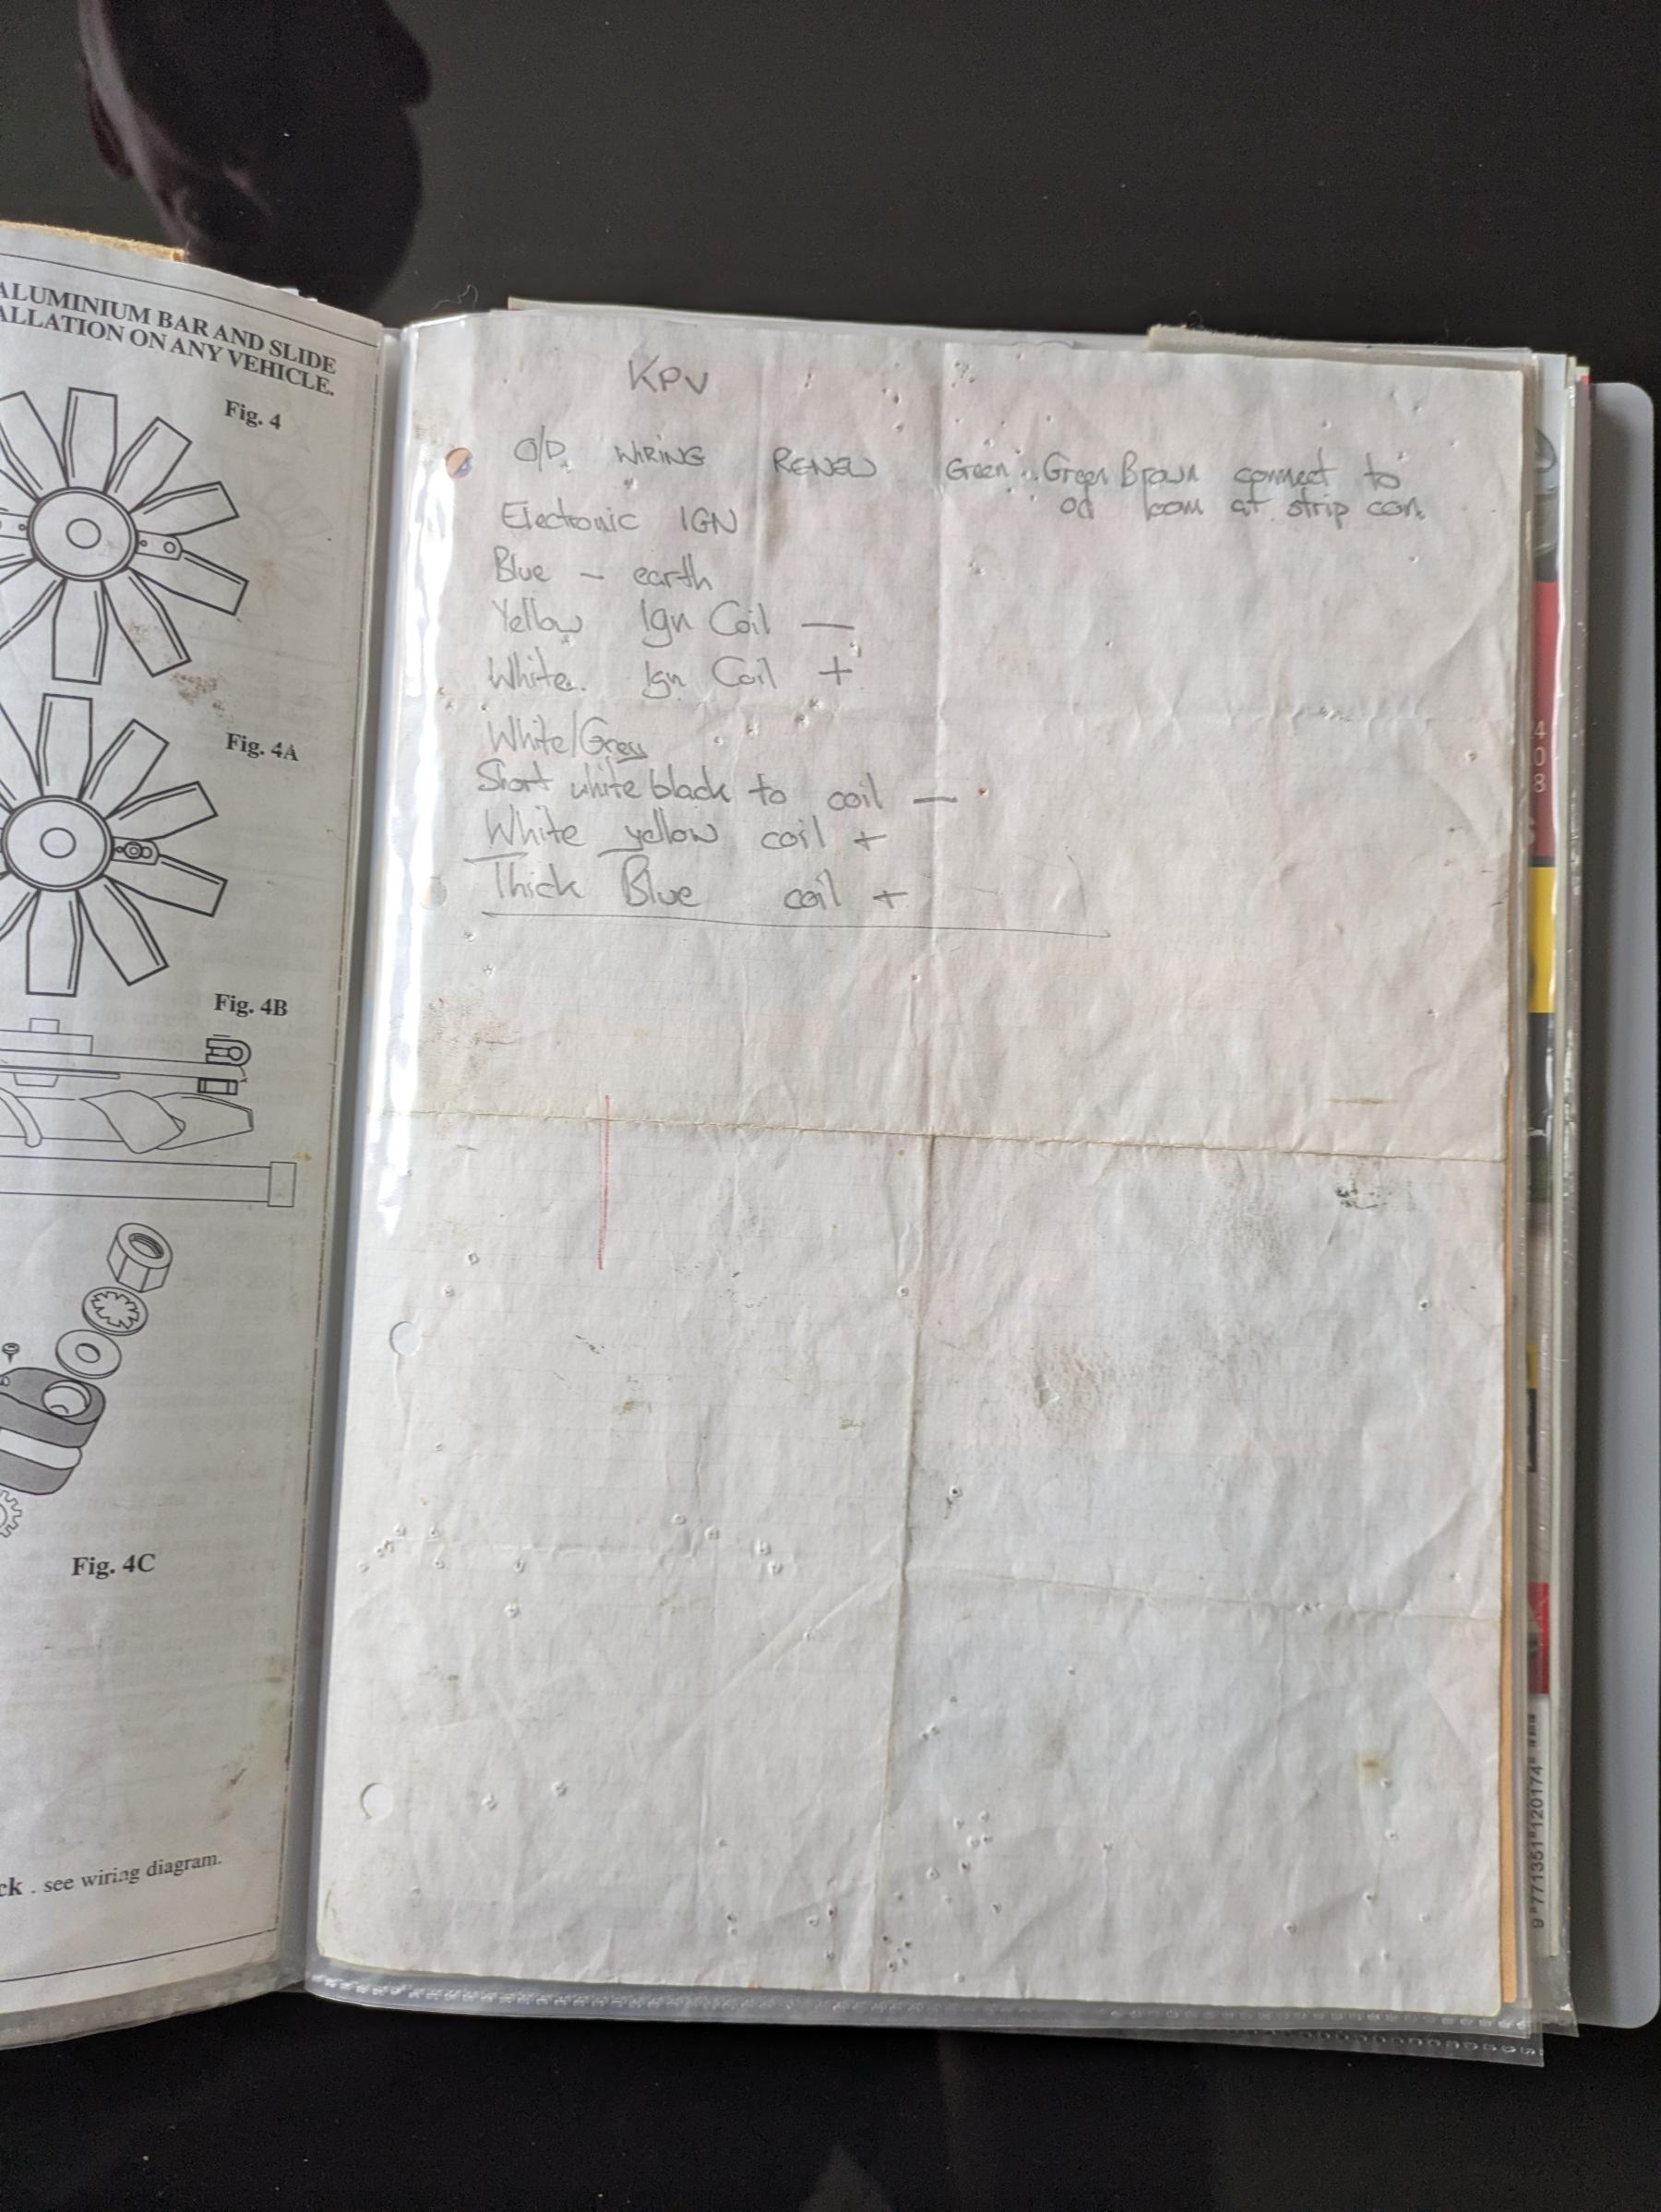 ALUMINIUM BAR AND SLIDE
ALLATION ON ANY VEHICLE.
Fig. 4
Fig. 4A
Fig. 4B
Fig. 4C
ck . see wiring diagram.
KPV
O/D WIRING RENEW Green . Green Brown connect to
od loom at strip con.
Electronic IGN
Blue – earth
Yellow Ign Coil —
White. Ign Coil +
White/Grey
Short white black to coil —
White yellow coil +
Thick Blue coil +
408
9 771351 120174